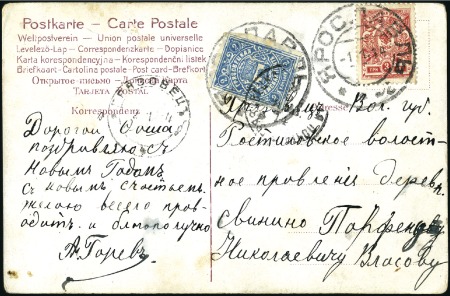 Postkarte – Carte Postale
Weltpostverein – Union postale universelle
Levelező-Lap – Correspondenzkarte – Dopisnice
Karta korespondencyjna – Korespondenční lístek
Briefkaart – Cartolina postale – Post card – Brefkort
Открытое письмо –
TARJETA POSTAL
Korrespondent
Adresse
ГРЯЗОВЕЦ
ЯРОСЛАВЛЬ
Дорогой
поздравляю с
Новымъ Годомъ
Съ новымъ счастьемъ
желаю весело прово-
дить и благополучно
А. Горевъ
Вол. гу.
Ростиловское волост-
ное правленіе деревн.
Свинино Парфен
Николаевичу Власову